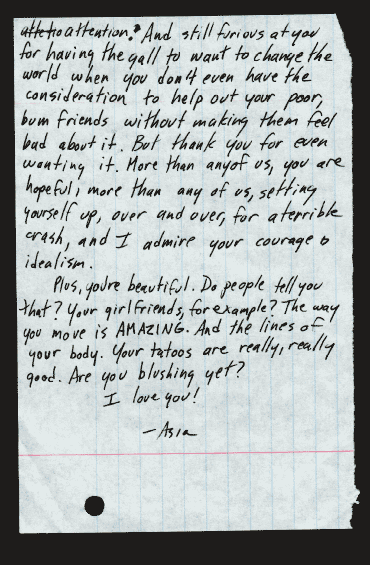 attention? And still furious at you
for having the gall to want to change the
world when you don't even have the
consideration to help out your poor,
bum friends without making them feel
bad about it. But thank you for even
wanting it. More than any of us, you are
hopeful, more than any of us, setting
yourself up, over and over, for a terrible
crash, and I admire your courage &
idealism.
Plus, you're beautiful. Do people tell you
that? Your girlfriends, for example? The way
you move is AMAZING. And the lines of
your body. Your tatoos are really, really
good. Are you blushing yet?
I love you!
—Asia